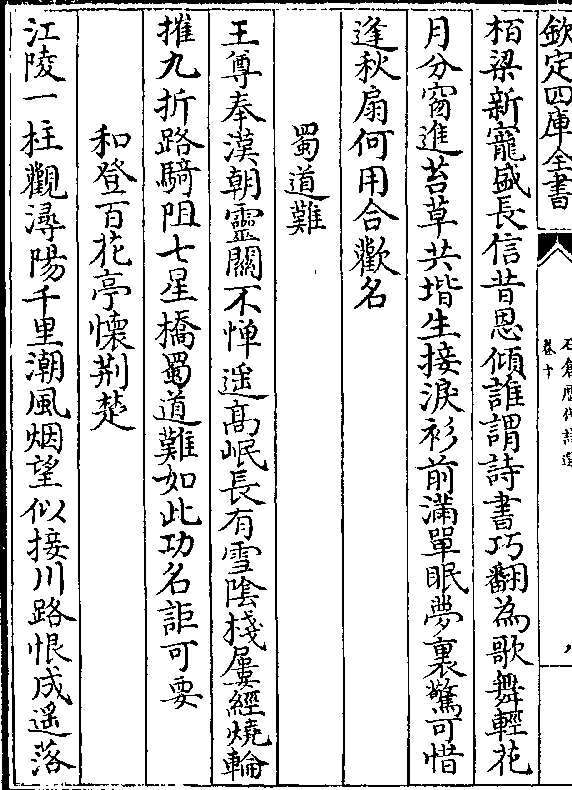 欽定四庫全書
石倉歷代詩選
卷十
栢梁新寵盛長信昔恩傾誰謂詩書巧翻為歌舞輕花
月分窗進苔草共堦生接淚衫前滿單眠夢裏驚可惜
逢秋扇何用合歡名
蜀道難
王尊奉漢朝靈關不憚遥高岷長有雪陰棧屢經燒輪
摧九折路騎阻七星橋蜀道難如此功名詎可要
和登百花亭懷荆楚
江陵一柱觀潯陽千里潮風烟望似接川路恨成遥落